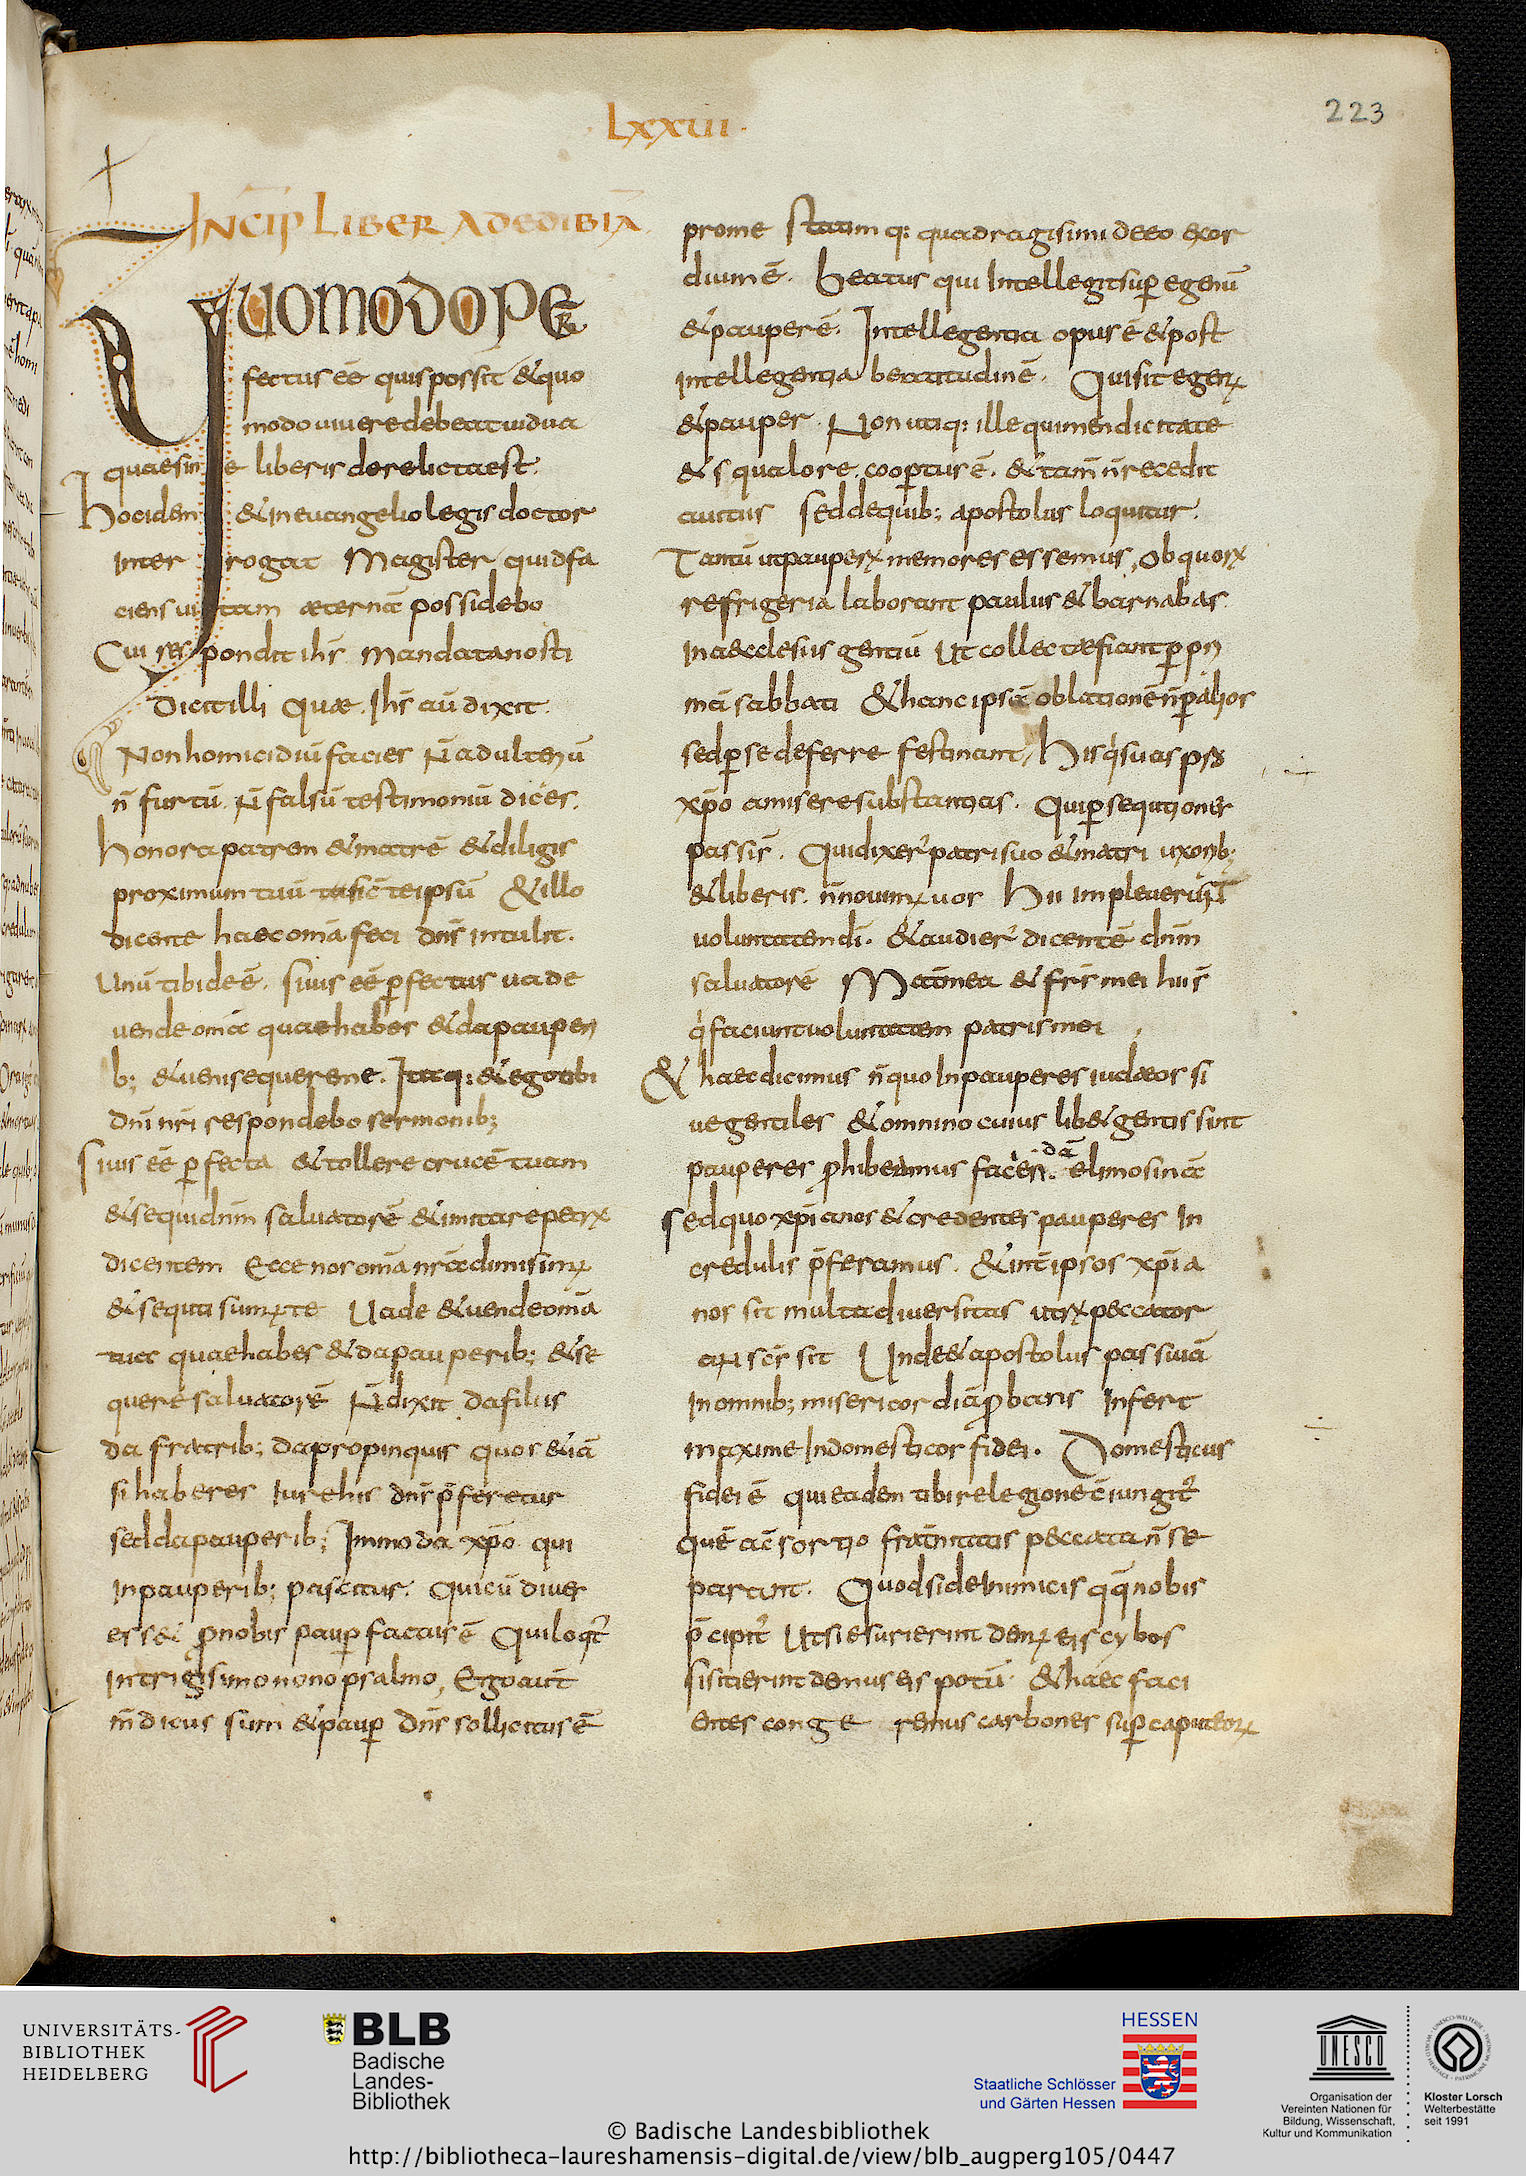 223
· LXXIII ·
INCIP LIBER ADEDIBIA
QUOMODO PER
fectus eē quis possit & quo
modo uiuere debeat uidua
quae sine liberis derelicta est.
Hoc idem & in euangelio legis doctor
interrogat Magister quid fa
ciens uitam aeternā possidebo
Cui respondit ihs̄ mandata nosti
Dicit illi Quae. Ihs̄ aū dixit.
Non homicidiū facies N̄ adulteriū
n̄ furtū. N̄ falsū testimoniū dices.
honora patrem & matrē & diligis
proximum tuū sic̄ te ipsū & illo
dicente haec om̄a feci dn̄s intulit.
Unū tibi deē. Si uis eē ꝑfectus uade
uende om̄a quae habes & da pauperi
b; & ueni sequere me. Itaq: & ego tibi
dn̄i nr̄i respondebo sermonib;
Si uis eē ꝑfecta & tollere crucē tuam
& sequi dnm̄ saluatorē & imitare petrū
dicentem Ecce nos om̄a nr̄a dimisimꝰ
& sequti sumꝰ te Uade & uende om̄a
tua quae habes & da pauperib; & se
quere saluatorē N̄ dixit da filiis
da fratrib; da propinquis quos &iā
si haberes iure his dn̄s p̄feretur
sed da pauperib; Immo da xp̄o qui
in pauperib; pascitur. Qui cū diues
ess& ꝓ nobis pauꝑ factus ē Qui loqt̄
in trigisimo nono psalmo, Ego aūt
m̄dicus sum & pauꝑ dn̄s sollicitus ē
prome statim q: quadragisimi deeo exor
dium ē. beatus qui intellegit suꝑ egenū
& pauperē. Intellegentia opus ē & post
intellegentia beatitudinē. Qui sit egenꝰ
& pauper. Non utiq: ille qui mendicitate
& squalore coopertus ē. & tam̄ n̄ recedit
a uitiis sed de quib; apostolus loquitur.
Tantū ut pauperū memores essemus, ob quorū
refrigeria laborant paulus & barnabas
In aecclesiis gentiū Ut collectae fiant ꝑ pri
mā sabbati & hanc ipsā oblationē n̄ ꝑ alios
sed ꝑ se deferre festinant, His q̇ suas ps
xp̄o amisere substantias. Qui ꝑsequtiones
passi s̄. Qui dixer̄ patri suo & matri uxorib;
& liberis. n̄ nouimꝰ uos Hii impleuerunt
uoluntatem dī. & audier̄ dicentē dnm̄
saluatorē Mat̄ mea & frs̄ mei hii s̄
q̇ faciunt uoluntatem patris mei
& haec dicimus n̄ quo in pauperes iudaeos si
ue gentiles & omnino cuius lib& gentis sint
pauperes ꝓhibeamus facien. dā elimosinā
sed quo xp̄ianos & credentes pauperes In
credulis p̄feramus. & int̄ ipsos xp̄ia
nos sit multa diuersitas utrū peccator
an sc̄s sit Unde & apostolus passiuā
In omnib; misericordiā ꝓbans Infert
maxime In domesticos fidei. Domesticus
fidei ē qui eadem tibi relegione c̄iungit̄
quē a c̄sortio frat̄nitatis peccata n̄ se
parant. Quod si de Inimicis q̄q̄ nobis
p̄cipit̄ Ut si esurierint demꝰ eis cybos
si sitierint demus eis potū. & haec faci
entes congeremus carbones suꝑ caput eorū
UNIVERSITÄTS-
BIBLIOTHEK
HEIDELBERG
BLB
Badische
Landes-
Bibliothek
HESSEN
Staatliche Schlösser
und Gärten Hessen
UNESCO
Organisation der
Vereinten Nationen für
Bildung, Wissenschaft,
Kultur und Kommunikation
Kloster Lorsch
Welterbestätte
seit 1991
© Badische Landesbibliothek
http://bibliotheca-laureshamensis-digital.de/view/blb_augperg105/0447